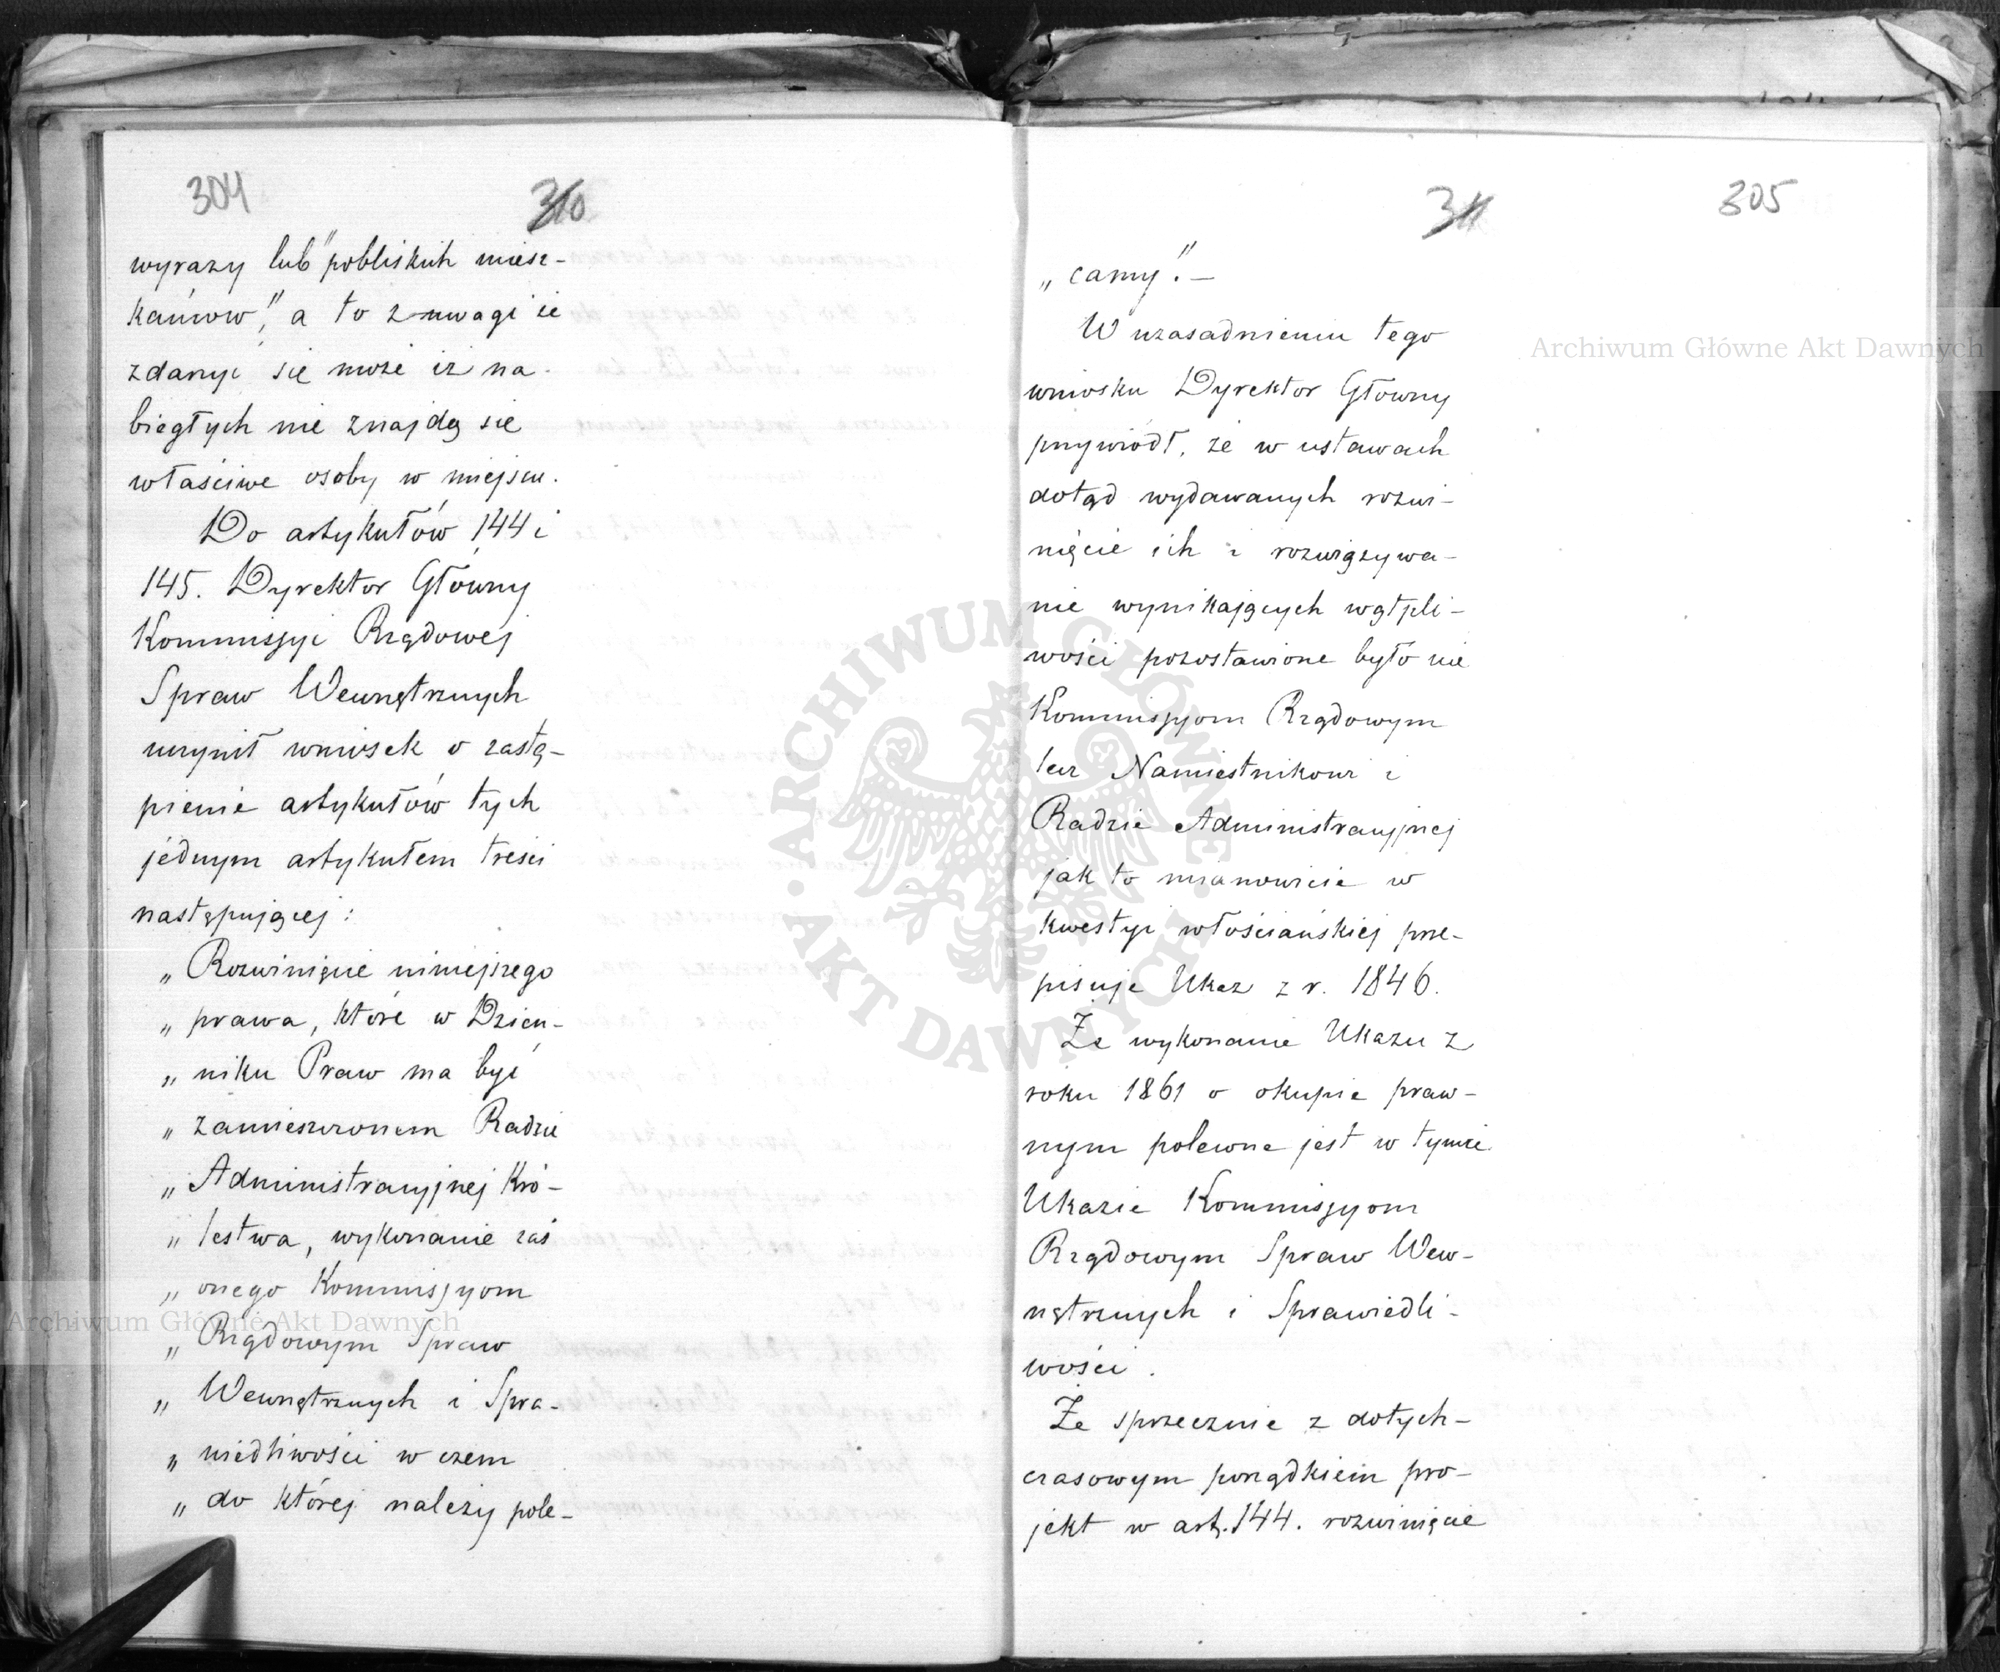 304
310
wyrazy lub "pobliskich miesz-
kańców", a to z uwagi że
zdarzyć się może iż na-
biegłych nie znajdą się
właściwe osoby w miejscu.
Do artykułów 144 i
145. Dyrektor Główny
Kommissyi Rządowej
Spraw Wewnętrznych
uczynił wniosek o zastą-
pienie artykułów tych
jednym artykułem treści
następującej:
„Rozwinięcie niniejszego
„prawa, które w Dzien-
„niku Praw ma być
„zamieszczonem Radzie
„Administracyjnej Kró-
„lestwa, wykonanie zaś
„onego Kommissyom
„Rządowym Spraw
„Wewnętrznych i Spra-
„wiedliwości w czem
„do której należy pole-
311
305
„camy".—
W uzasadnieniu tego
wniosku Dyrektor Główny
przywiódł, że w ustawach
dotąd wydawanych rozwi-
nięcie ich i rozwiązywa-
nie wynikających wątpli-
wości pozostawione było nie
Kommissyom Rządowym
lecz Namiestnikowi i
Radzie Administracyjnej
jak to mianowicie w
kwestyi włościańskiej prze-
pisuje Ukaz z r. 1846.
Że wykonanie Ukazu z
roku 1861 o okupie praw-
nym polecone jest w tymże
Ukazie Kommissyom
Rządowym Spraw Wew-
nętrznych i Sprawiedli-
wości.
Że sprzecznie z dotych-
czasowym porządkiem pro-
jekt w art. 144. rozwinięcie
Archiwum Główne Akt Dawnych
Archiwum Główne Akt Dawnych
ARCHIWUM GŁÓWNE AKT DAWNYCH